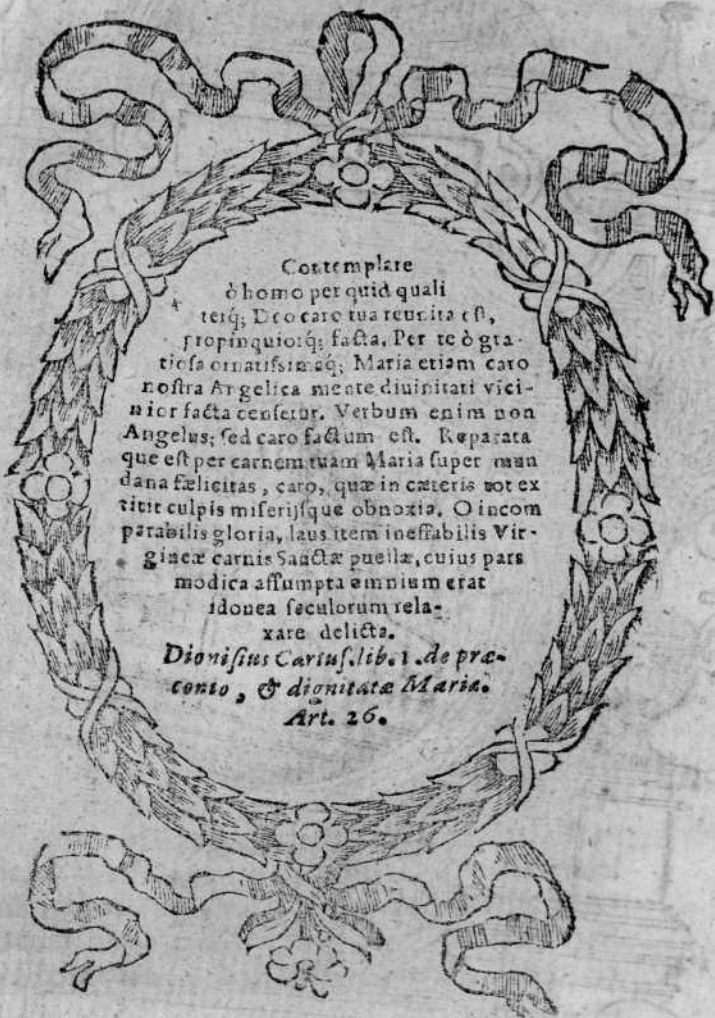 Contemplare
ò homo per quid quali
terq; Deo caro tua reunita est,
propinquiorq; facta. Per te ò gra-
tiosa ornatissimaq; Maria etiam caro
nostra Angelica mente diuinitati vici-
nior facta censetur. Verbum enim non
Angelus; sed caro factum est. Reparata
que est per carnem tuam Maria super mun
dana fælicitas, caro, quæ in cæteris tot ex
titit culpis miserijsque obnoxia. O incom
parabilis gloria, laus item ineffabilis Vir-
gineæ carnis Sanctæ puellæ, cuius pars
modica assumpta omnium erat
idonea seculorum rela-
xare delicta.
Dionisius Cartus. lib. 1. de præ-
conio, & dignitatæ Mariæ.
Art. 26.